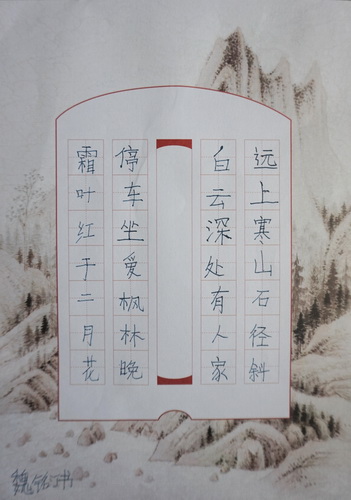 远上寒山石径斜
白云深处有人家
停车坐爱枫林晚
霜叶红于二月花
魏 书